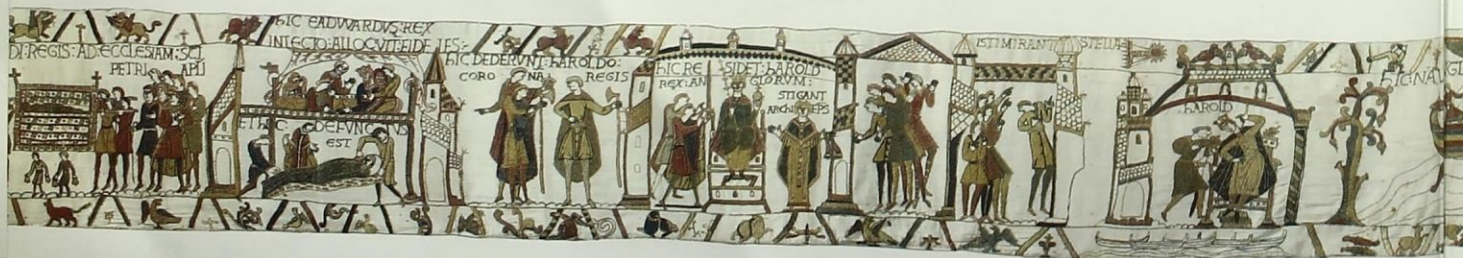 DI: REGIS: AD: ECCLESIAM: SCI
PETRI APLI
HIC EADVVARDVS: REX
IN LECTO: ALLOQVIT: FIDELES:
ET HIC: DEFVNCTVS
EST
HIC DEDERVNT: hAROLDO:
CORONA REGIS
hIC RESIDET: hAROLD
REX: ANGLORVM:
STIGANT
ARChIEPS
ISTI MIRANT STELLA
hAROLD
hIC NAV